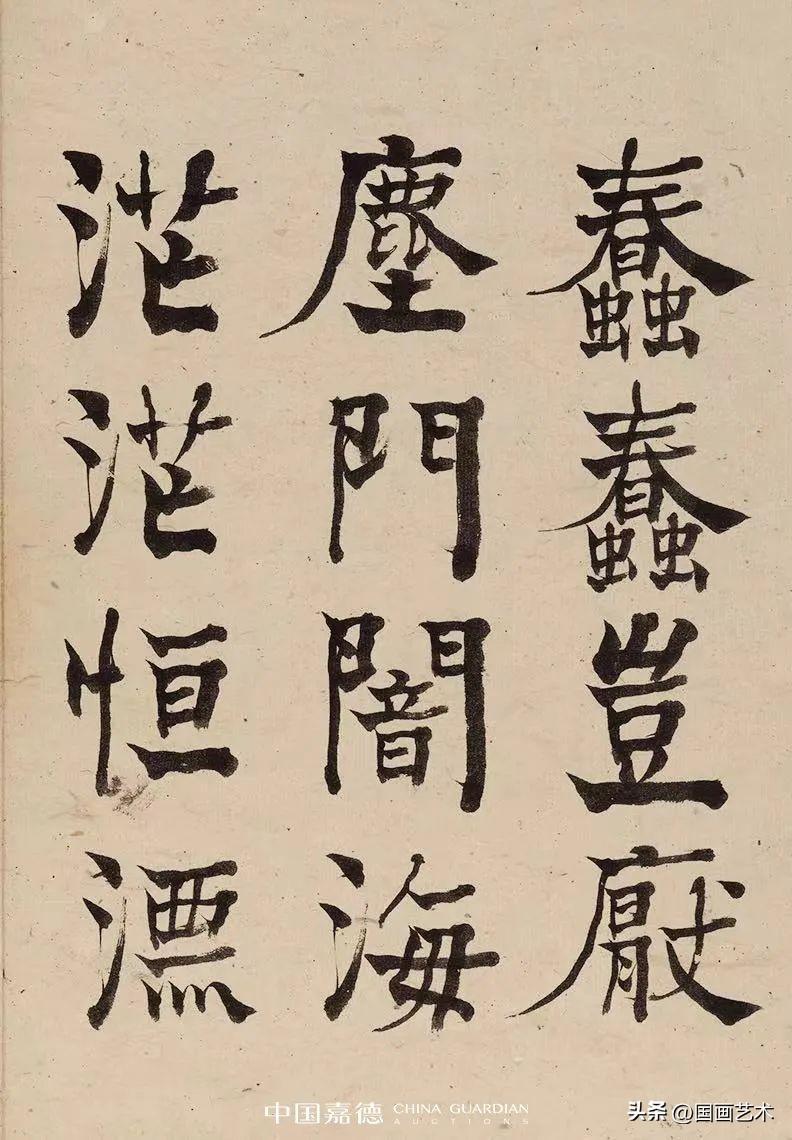 蠢蠢豈厭
塵門闇海
茫茫恒漂
中国嘉德 CHINA GUARDIAN
AUCTIONS
头条 @国画艺术